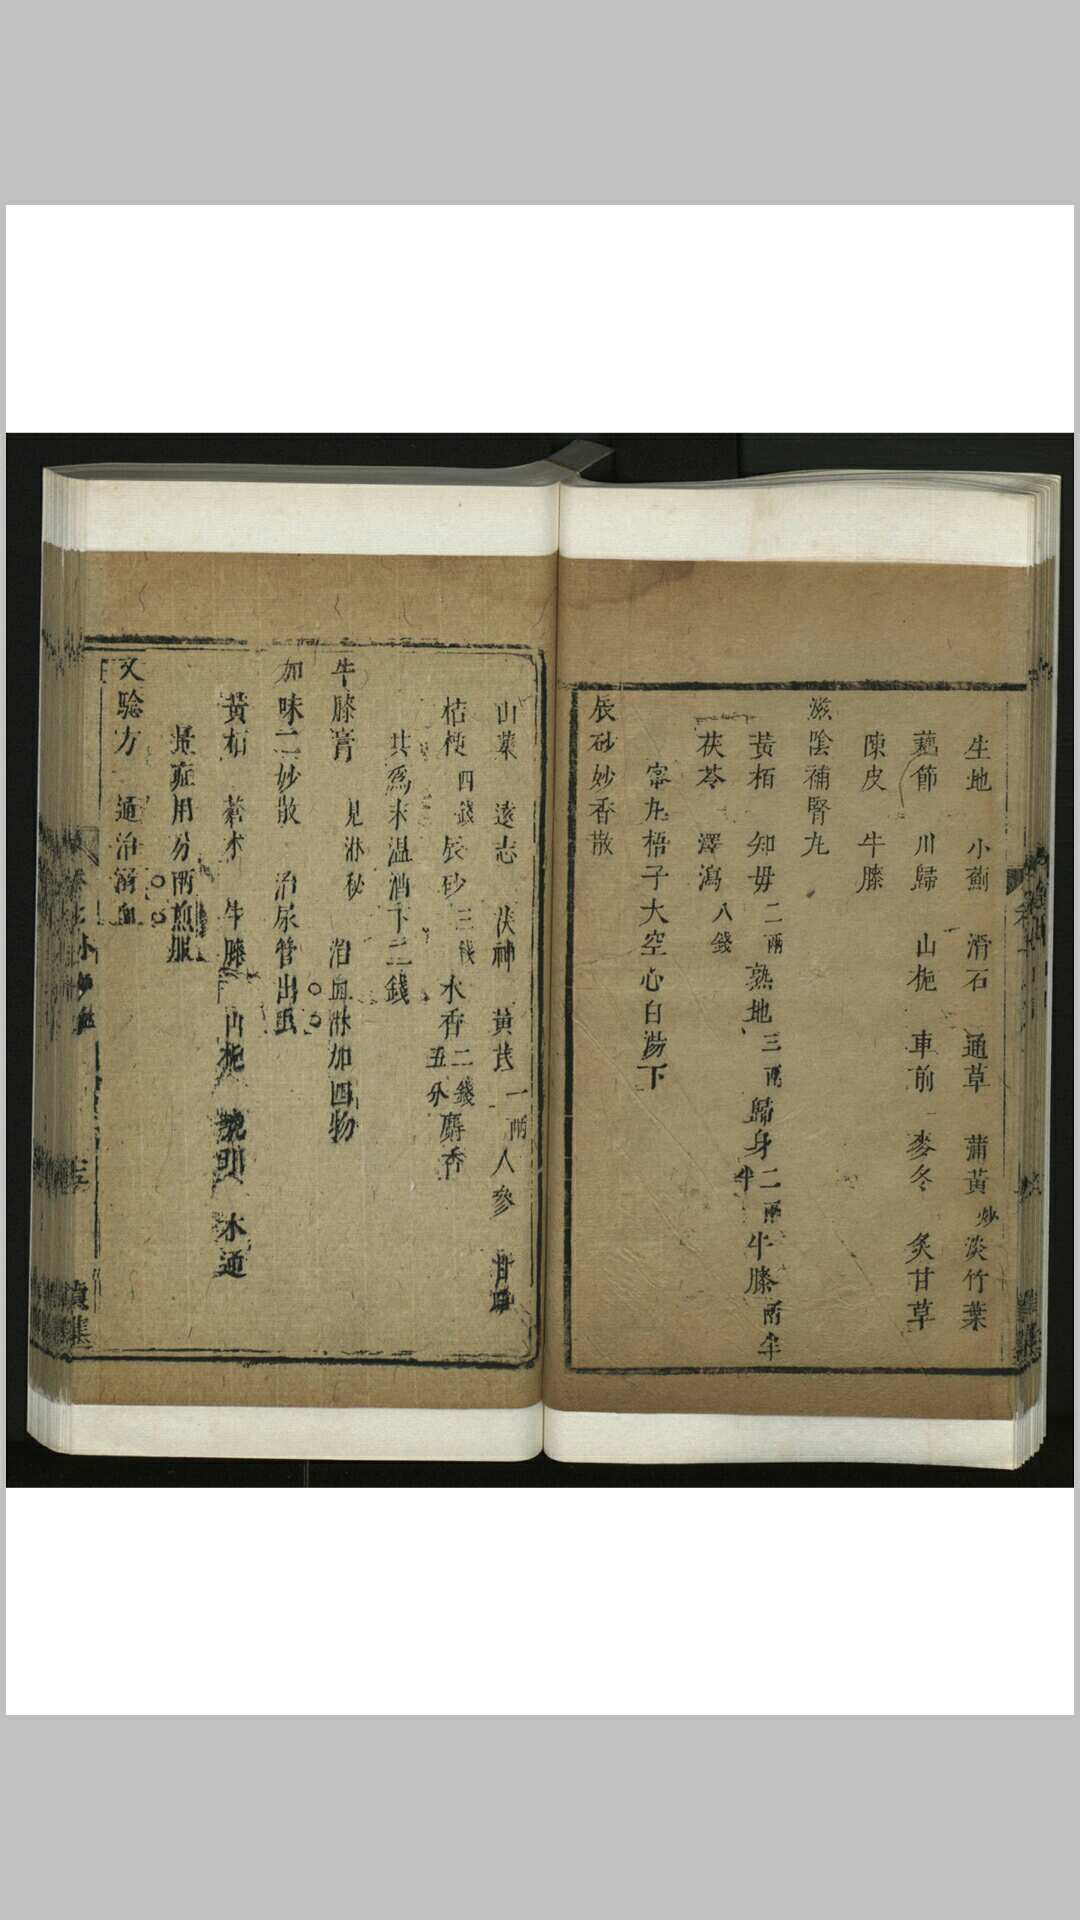 生地 小薊 滑石 通草 蒲黃炒 淡竹葉
藕節 川歸 山梔 車前 麥冬 炙甘草
陳皮 牛膝
滋陰補腎丸
黃栢 知毋二兩 熟地三兩 歸身二兩半 牛膝兩半
茯苓 澤瀉八錢
蜜丸梧子大空心白湯下
辰砂妙香散
山藥 遠志 茯神 黃芪一兩 人參 甘草
桔梗四錢 辰砂三錢 木香二錢五分 麝香
共爲末温酒下二錢
牛膝膏 見淋秘 治血淋加四物
加味二妙散 治尿管出血
黃栢 蒼朮 牛膝 山梔 木通
量症用分兩煎服
又驗方 通治溺血